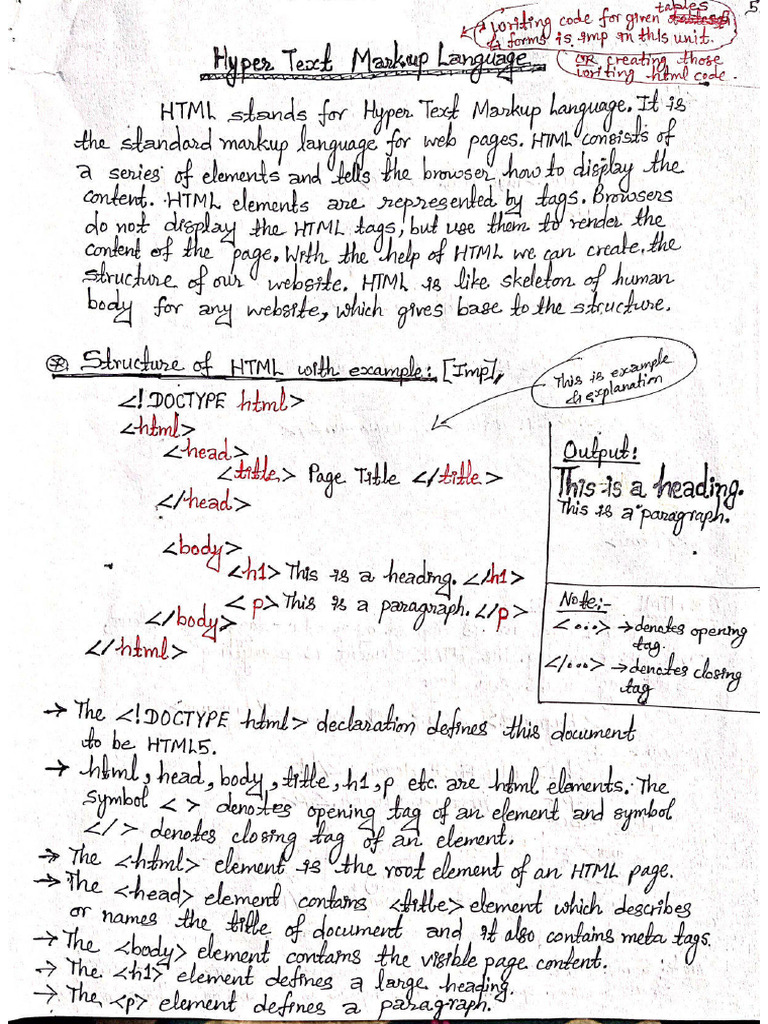 tables 5
writing code for given
& forms is imp in this unit.
OR creating those
writing html code.
Hyper Text Markup Language
HTML stands for Hyper Text Markup Language. It is
the standard markup language for web pages. HTML consists of
a series of elements and tells the browser how to display the
content. HTML elements are represented by tags. Browsers
do not display the HTML tags, but use them to render the
content of the page. With the help of HTML we can create the
structure of our website. HTML is like skeleton of human
body for any website, which gives base to the structure.
⊛. Structure of HTML with example: [Imp],
This is example
& explanation
<!DOCTYPE html>
<html>
<head>
<title> Page Title </title>
</head>
<body>
<h1> This is a heading. </h1>
<p> This is a paragraph. </p>
</body>
</html>
Output:
This is a heading.
This is a paragraph.
Note:-
<...> → denotes opening
tag.
</...> → denotes closing
tag
→ The <!DOCTYPE html> declaration defines this document
to be HTML5.
→ html, head, body, title, h1, p etc. are html elements. The
symbol < > denotes opening tag of an element and symbol
</ > denotes closing tag of an element.
→ The <html> element is the root element of an HTML page.
→ The <head> element contains <title> element which describes
or names the title of document and it also contains meta tags.
→ The <body> element contains the visible page content.
→ The <h1> element defines a large heading.
→ The <p> element defines a paragraph.